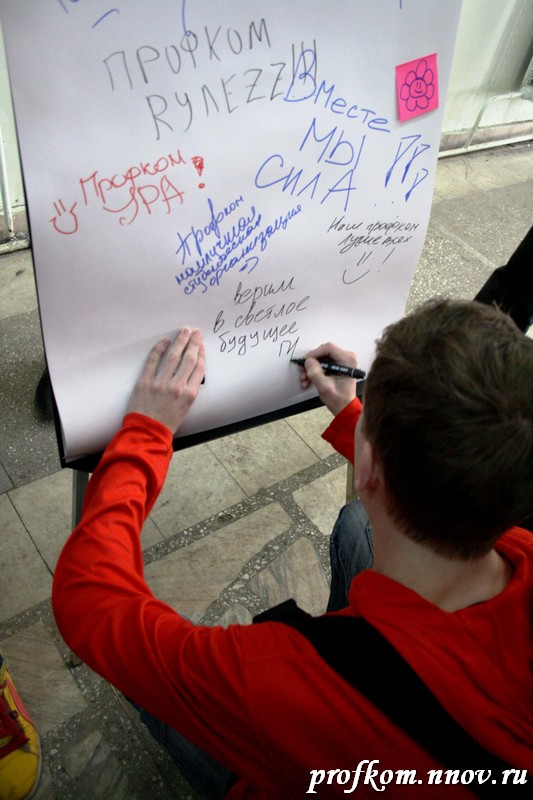 ПРОФКОМ
RУЛЕZZ!!!
Вместе
МЫ
СИЛА !!!
Профком
УРА!
Профком
студенческая
организация
Наш профком
лучше всех
верим
в светлое
будущее
ГИ
profkom.nnov.ru